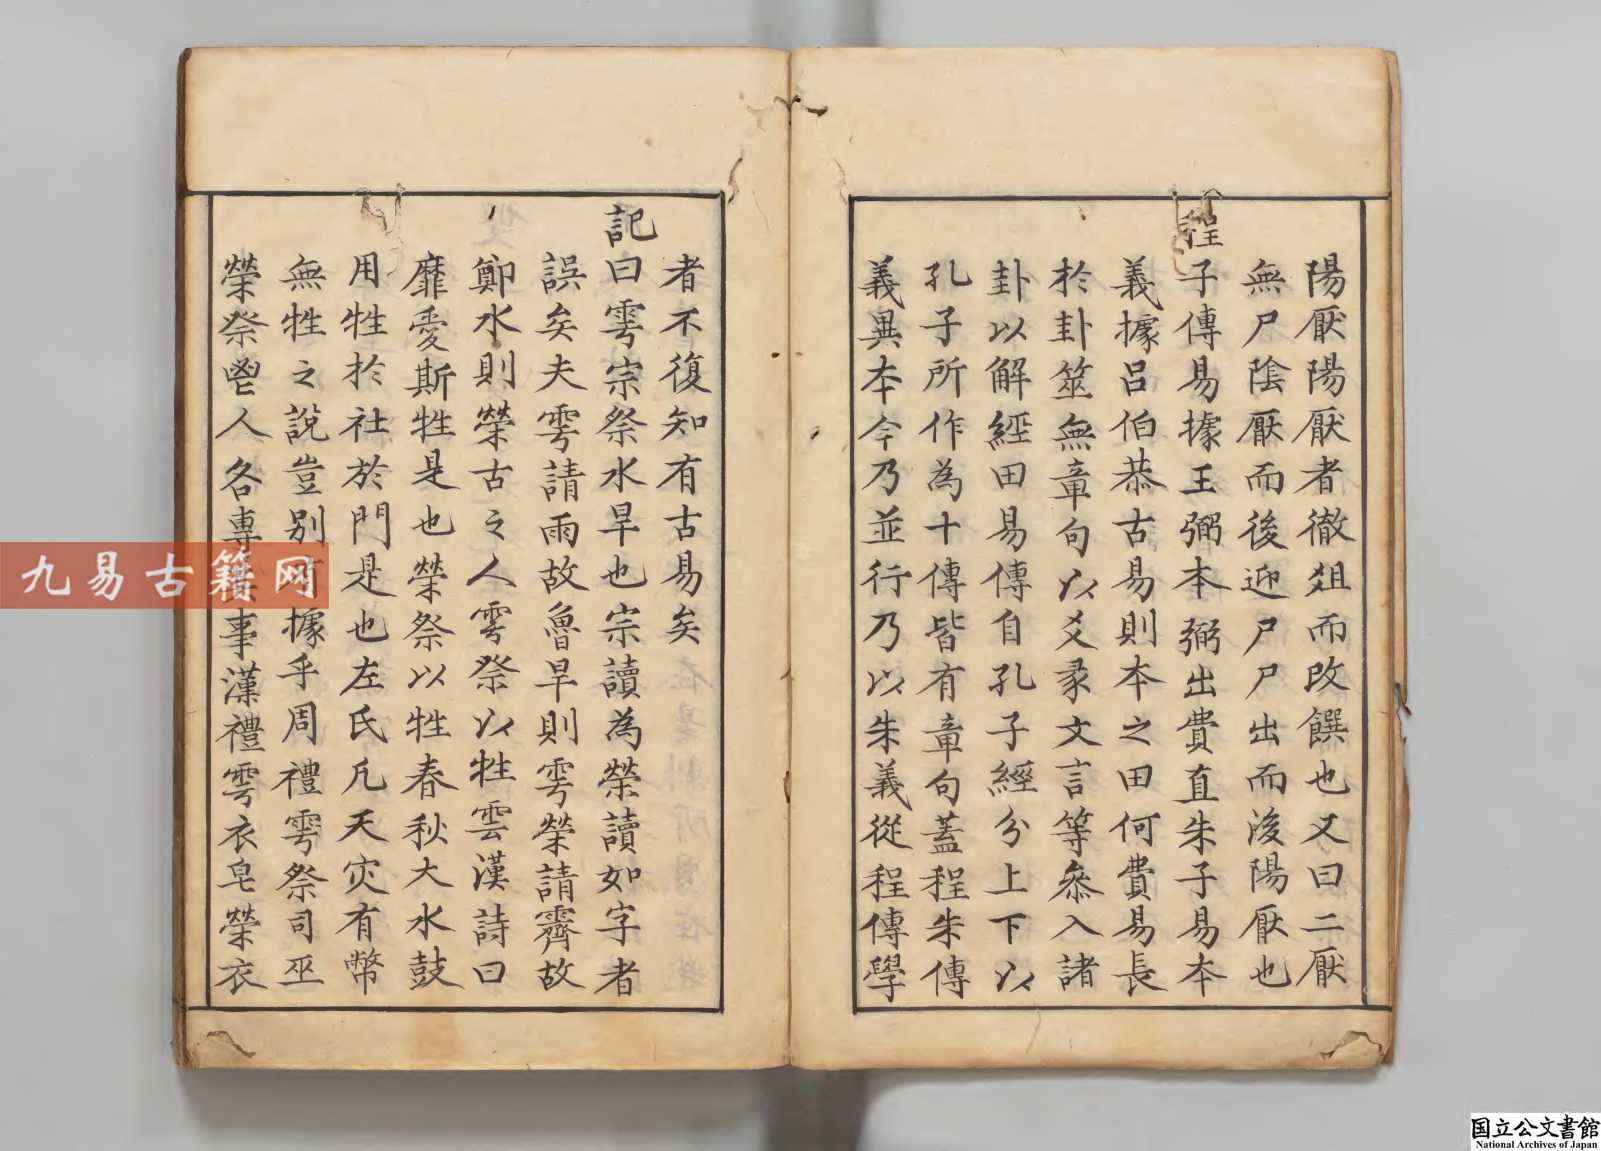 陽厭陽厭者徹俎而改饌也又曰二厭
無尸陰厭而後迎尸尸出而後陽厭也
程子傳易據王弼本弼出費直朱子易本
義據呂伯恭古易則本之田何費易長
於卦筮無章句以爻彖文言等叅入諸
卦以解經田易傳自孔子經分上下以
孔子所作為十傳皆有章句蓋程朱傳
義異本今乃並行乃以朱義從程傳學
者不復知有古易矣
記曰雩宗祭水旱也宗讀為禜讀如字者
誤矣夫雩請雨故魯旱則雩禜請霽故
鄭水則禜古之人雩祭以牲雲漢詩曰
靡愛斯牲是也禜祭以牲春秋大水鼓
用牲於社於門是也左氏凡天灾有幣
無牲之說豈別據乎周禮雩祭司巫
禜祭鬯人各專事漢禮雩衣皂禜衣
九易古籍网
国立公文書館
National Archives of Japan